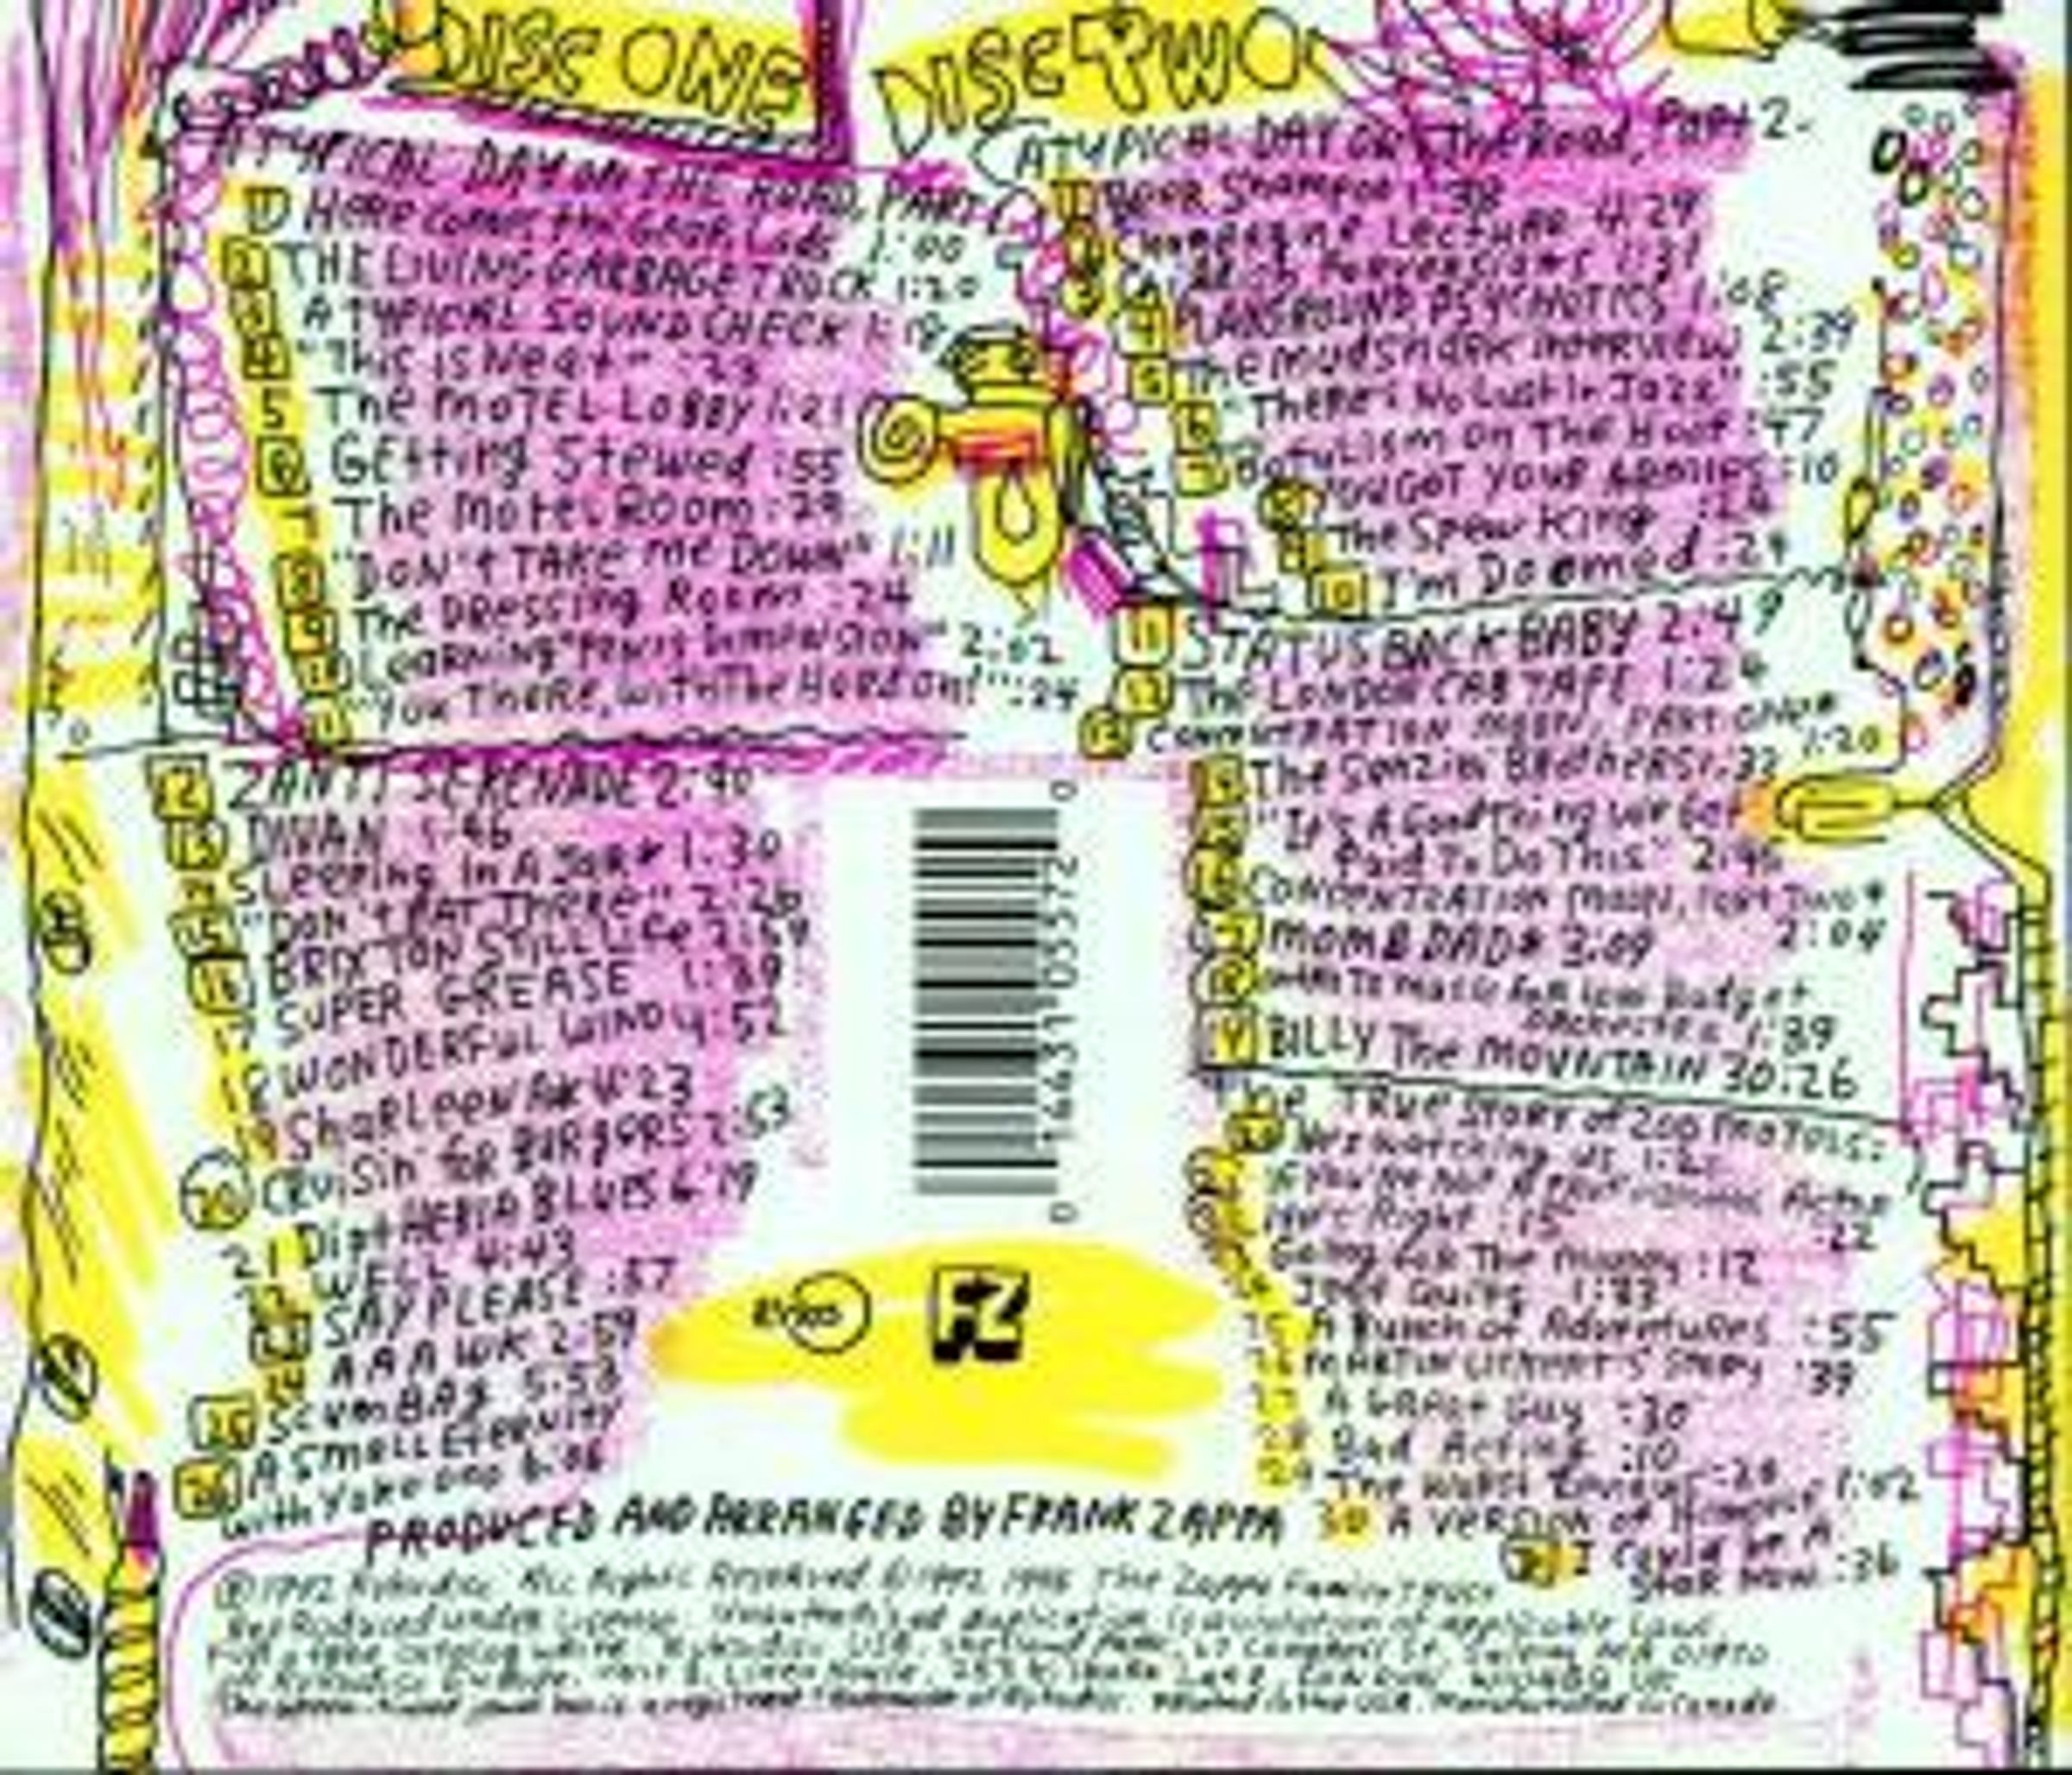 DISC ONE
A TYPICAL DAY ON THE ROAD, PART
1 Here comes the Gear, Lads 1:00
2 THE LIVING GARBAGE TRUCK 1:20
A TYPICAL SOUND CHECK 1:19
"This is Neat" :23
5 The MOTEL Lobby 1:21
6 Getting Stewed :55
7 The Motel Room :29
"DON't TAKE me DOWN" 1:11
The DRessing Room :24
Learning "Penis Dimension" 2:02
"You There, with The Hard on!" :24
12 ZANTI SERENADE 2:40
DIVAN 1:46
Sleeping In A Jar # 1:30
"DON'T EAT THERE" 2:26
BRIXTON STILL Life 2:59
SUPER GREASE 1:39
WONDERFUL WINO 4:52
Sharleena # 4:23
20 CRUISIN for BURGERS 2:53
21 Diptheria BLUES 6:19
WELL 4:43
SAY PLEASE :57
AAAWK 2:59
25 SCUMBAG 5:53
26 A Small Eternity
with Yoko ono 6:06
DISC TWO
A TYPICAL DAY ON The Road, Part 2.
1 Beer Shampoo 1:39
Champagne Lecture 4:29
Childish Perversions 1:31
4 PLAYGROUND PSYCHOTICS 1:08
5 The mudshark interview 2:39
6 "There's No Lust In Jazz" :55
7 Botulism on The Hoof :47
You GOT YOUR ARMIES :10
The Spew King :24
10 I'm Doomed :24
11 STATUS BACK BABY 2:49
12 The LONDON CAB TAPE 1:24
13 CONCENTRATION MOON, PART ONE #
1:20
The Sanzini Brothers 1:32
"It's A Good Thing We Get
Paid To Do This" 2:45
Concentration Moon, Part Two #
2:04
MOM & DAD # 3:09
Music for Low Budget
Orchestra 1:39
BILLY The MOUNTAIN 30:26
The TRUE Story of 200 MOTELS:
He's Watching Us
If You're Not A Professional Actor
:22
He's Right :15
Going For The Money :12
Jeff Quits 1:33
A Bunch of Adventures :55
MARTIN Lickert's Story :39
A Great Guy :30
Bad Acting :10
The Worst Reviews :20
30 A Version of Himself 1:02
31 Could Be A
Star Now :36
0 14431 05572 0
FZ
PRODUCED AND ARRANGED BY FRANK ZAPPA
Rykodisc. All Rights Reserved The Zappa Family Trust
Reproduced under License. Unauthorized duplication is a violation of applicable laws
For a free catalog write: Rykodisc USA, Shetland Park, 27 Congress St. Salem, MA 01970
Manufactured in Canada